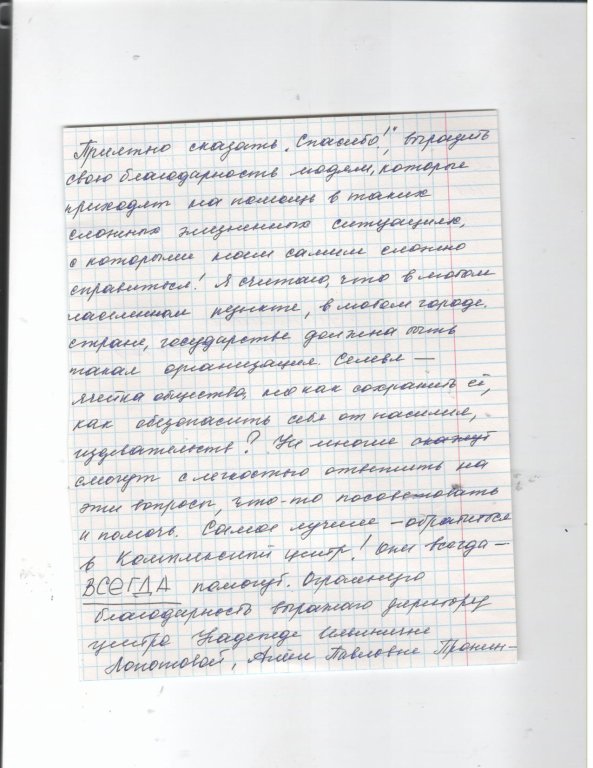 Приятно сказать „Спасибо!", выразить
свою благодарность людям, которые
приходят на помощь в таких
сложных жизненных ситуациях,
с которыми нам самим сложно
справиться! Я считаю, что в любом
населенном пункте, в любом городе,
стране, государстве должна быть
такая организация. Семья —
ячейка общества, но как сохранить её,
как обезопасить себя от насилия,
издевательств? Не многие скажут
смогут с легкостью ответить на
эти вопросы, что-то посоветовать
и помочь. Самое лучшее – обратиться
в Комплексный центр! Они всегда –
ВСЕГДА помогут. Огромную
благодарность выражаю директору
центра Надежде Ильиничне
Лопатовой, Анне Павловне Пронин-